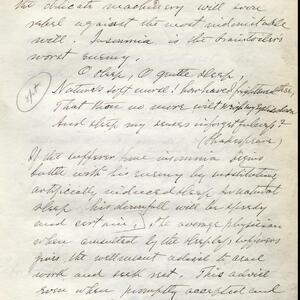 the delicate machinery will soon
rebel against the most indomitable
will! Insomnia is the brainworker's
worst enemy.
O sleep, O gentle sleep
Nature's soft nurse! how have I frightened thee,
That thou no more wilt weigh my eyelids down
And steep my senses in forgetfulness?
(Shakespeare)
If the sufferer from insomnia begins
battle with his enemy by substituting
artificially induced sleep for natural
sleep, his downfall will be speedy
and certain; the average physician
when consulted by the sleepless sufferers
gives the well meant advice to cease
work and seek rest. This advice
even when promptly accepted and